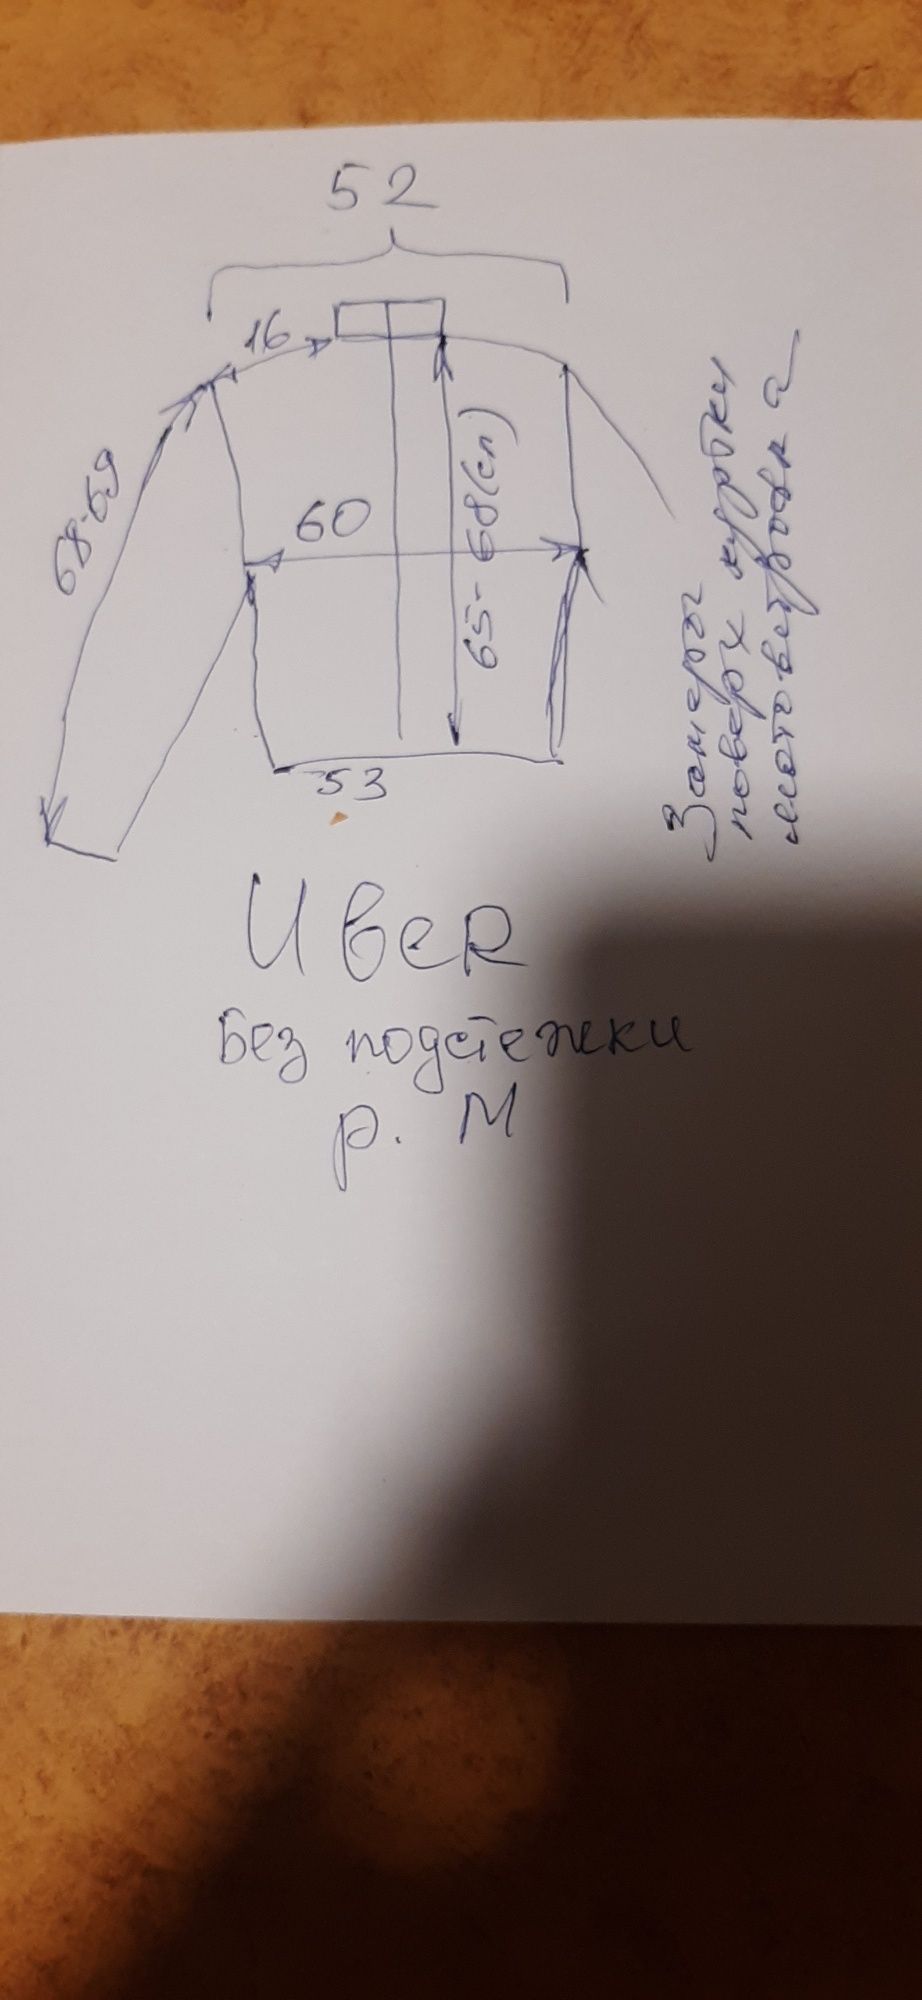 52
16
68-69
60
65-68(сп)
53
Замеры
поверх куртки
мотоветровка
ИвеR
Без подстежки
р. М